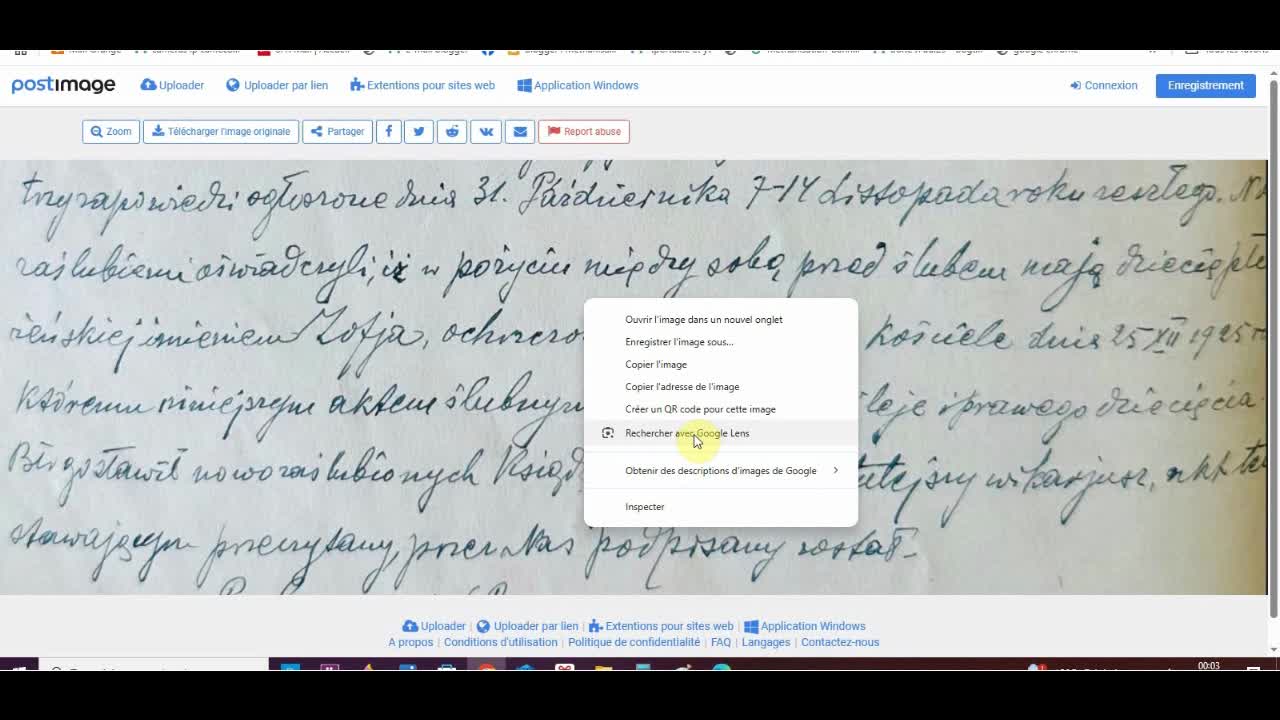 postimage Uploader Uploader par lien Extentions pour sites web Application Windows Connexion Enregistrement
Zoom Télécharger l'image originale Partager Report abuse
trzy zapowiedzi ogłoszone dnia 31. Października 7-14 Listopada roku zeszłego.
zaślubieni oświadczyli, iż w pożyciu między sobą przed ślubem mają dziecię płci
żeńskiej imieniem Zofja, kościele dnia 25 XII 1925
któremu niniejszym aktem ślubnym i prawego dziecięcia
Błogosławił nowozaślubionych Ksiądz wikarjusz, akt ten
stawającym przeczytany, przez Nas podpisany został
Ouvrir l'image dans un nouvel onglet
Enregistrer l'image sous...
Copier l'image
Copier l'adresse de l'image
Créer un QR code pour cette image
Rechercher avec Google Lens
Obtenir des descriptions d'images de Google
Inspecter
Uploader Uploader par lien Extentions pour sites web Application Windows
A propos | Conditions d'utilisation | Politique de confidentialité | FAQ | Langages | Contactez-nous
00:03